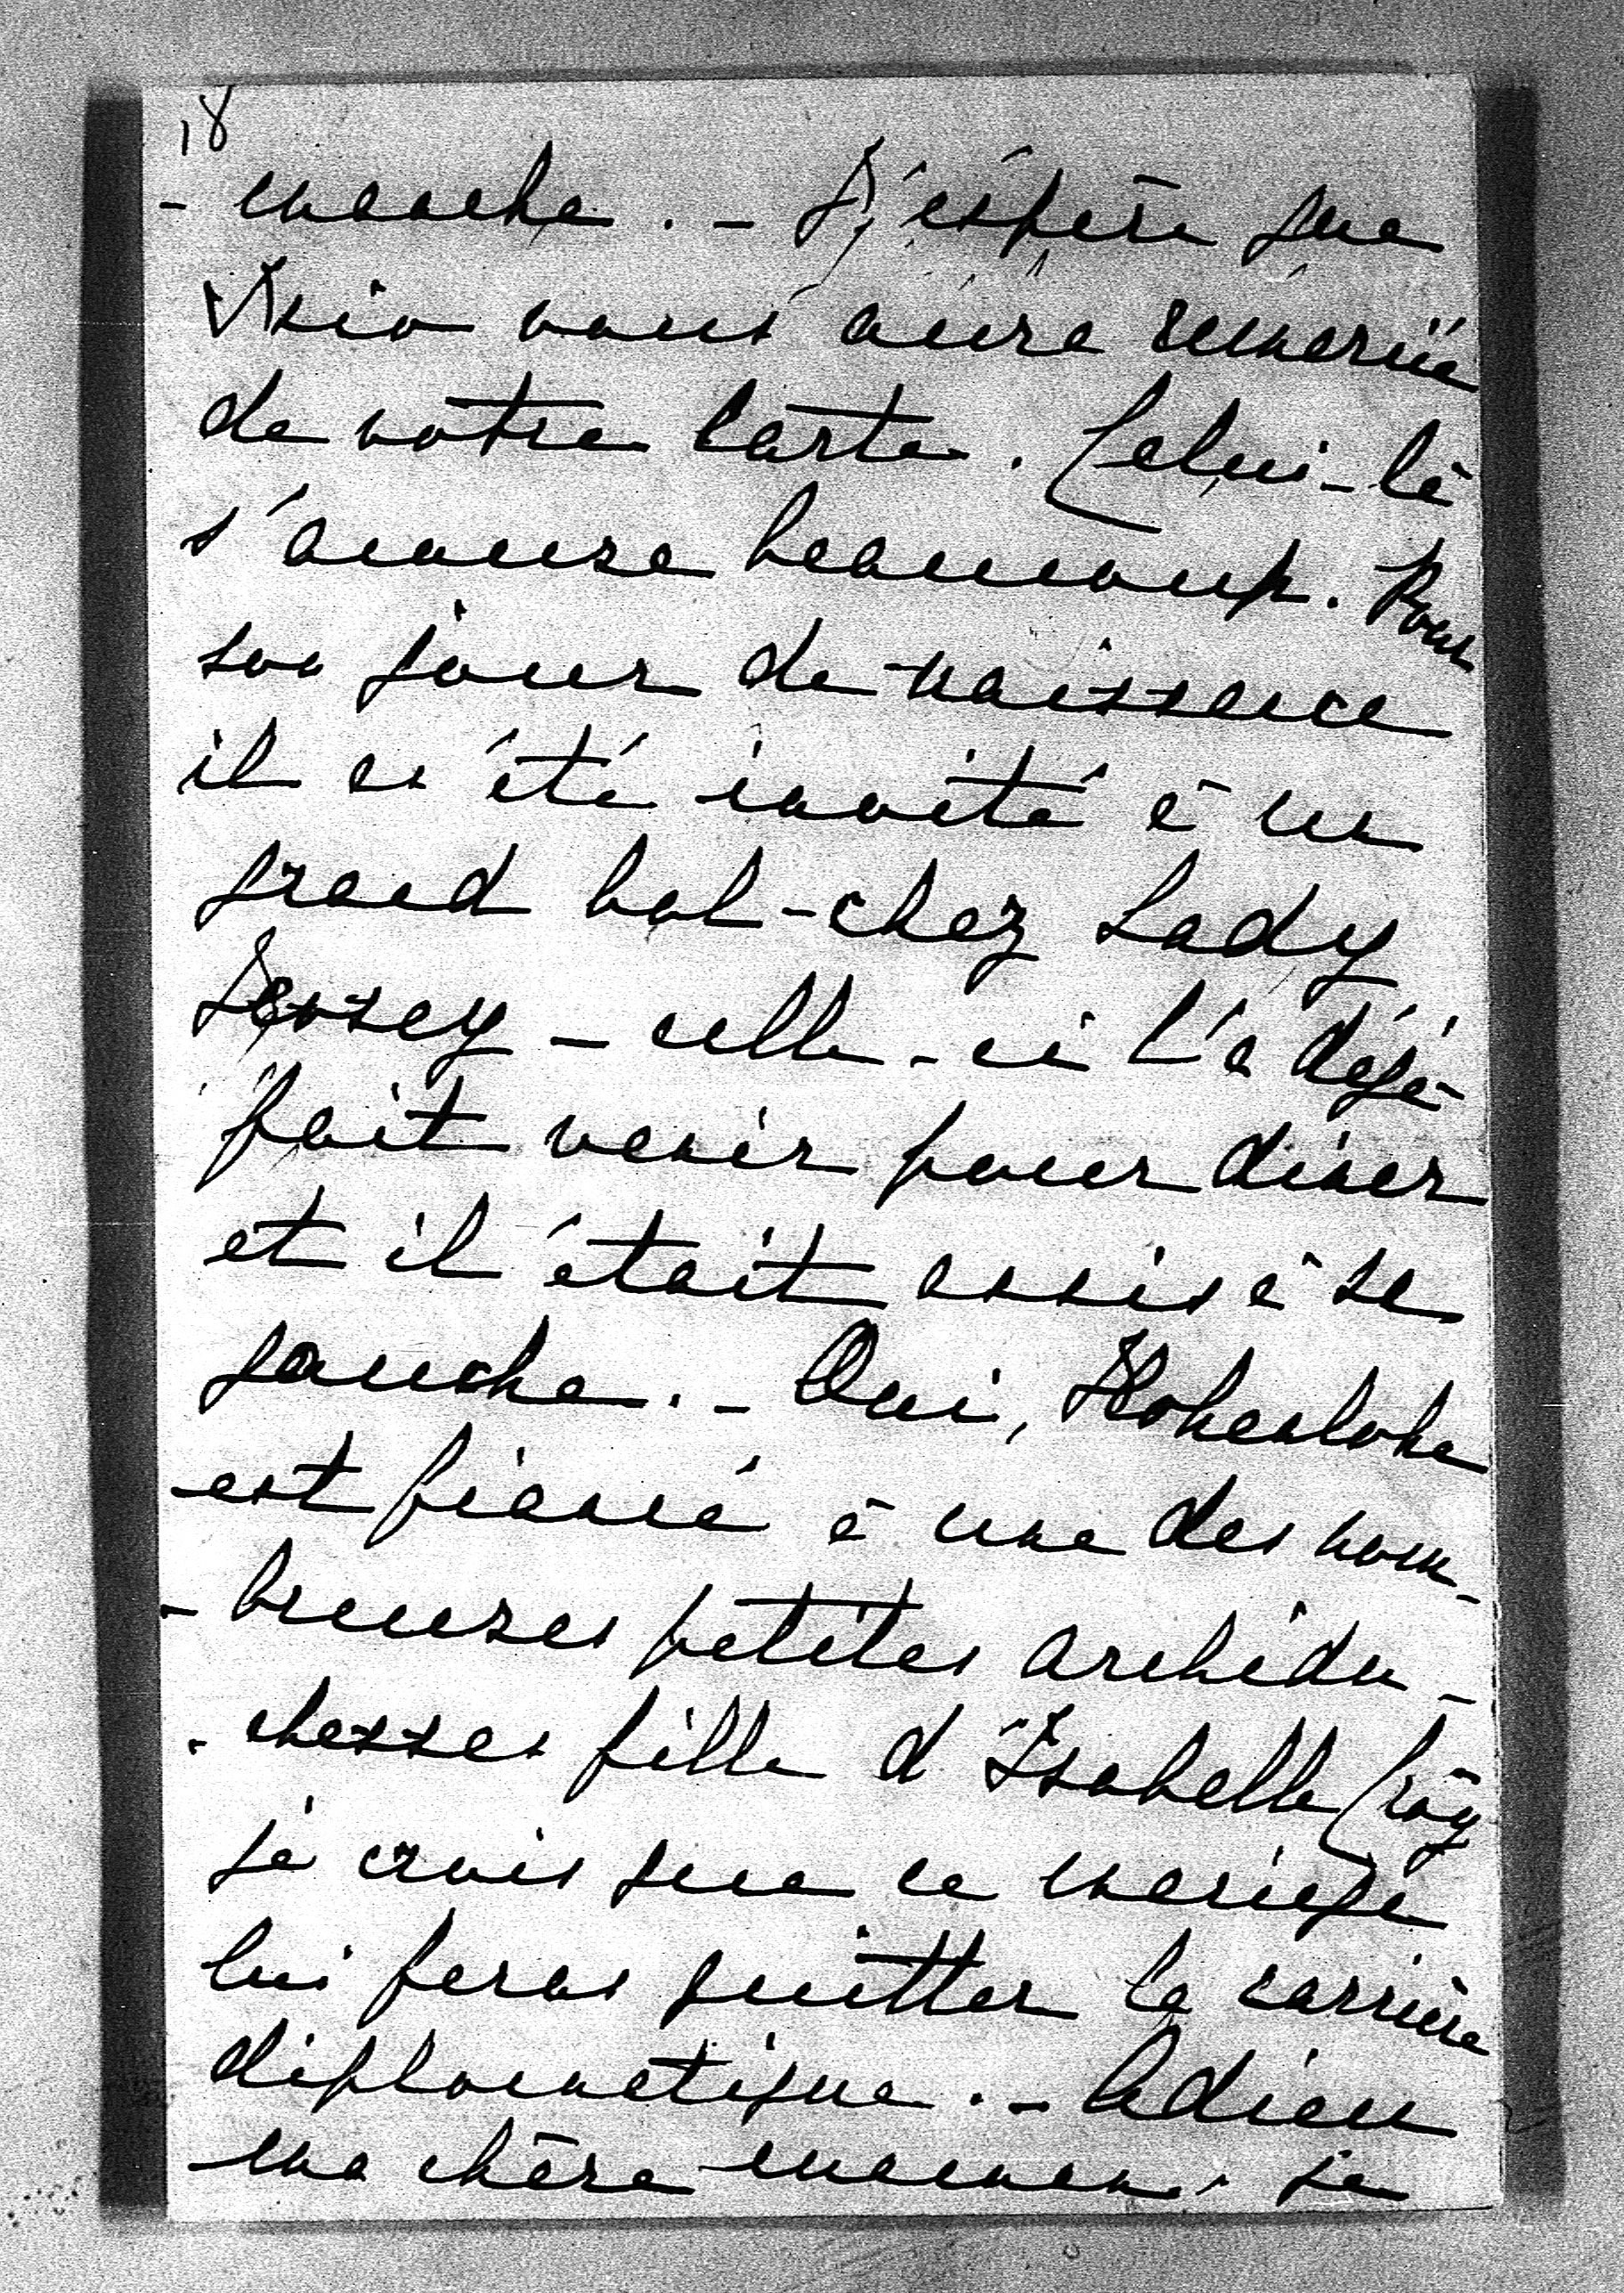 18
- manche. - J'éspère que
vous aura remerciée
de votre carte. Celui-là
s'amuse beaucoup. Pour
son jour de naissance
il a été invité à un
grand bal - chez Lady
Jersey - celle-ci l'a déjà
fait venir pour diner
et il était assis à sa
gauche. - Oui, Hohenlohe
est fiancé à une des nom-
- breuses petites archidu-
- chesses fille d'Isabelle Croÿ
je crois que ce mariage
lui feras quitter la carrière
diplomatique. - Adieu
ma chère maman, je